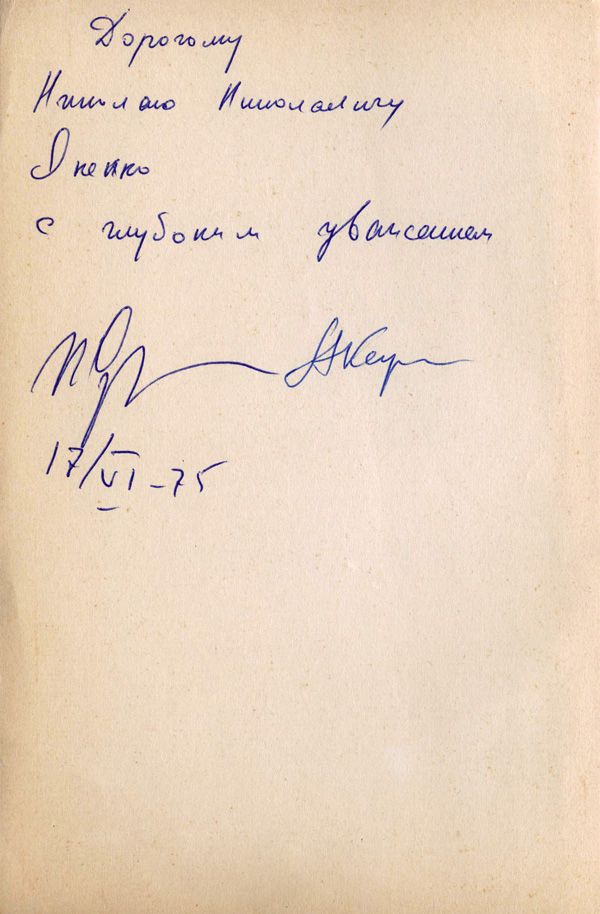 Дорогому
Николаю Николаевичу
Яненко
с глубоким уважением
17/VI-75